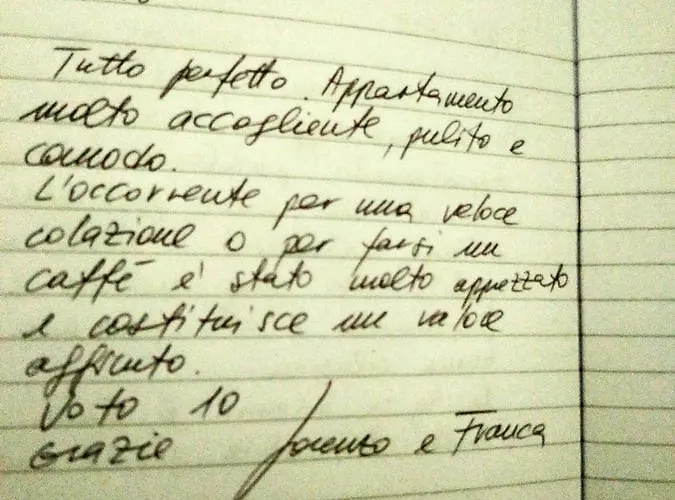 Tutto perfetto. Appartamento
molto accogliente, pulito e
comodo.
L'occorrente per una veloce
colazione o per farsi un
caffè è stato molto appezzato
e costituisce un valoce
affiunto.
Voto 10
Grazie Lorenzo e Franca